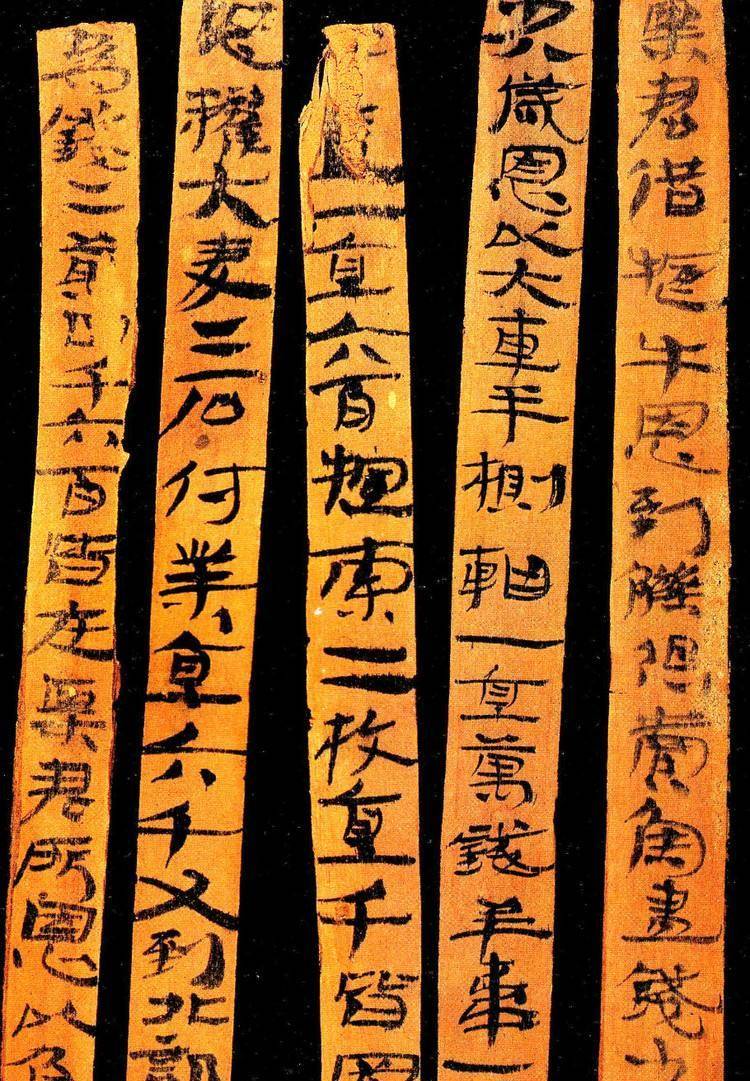 粟君借牛恩到觻得賣魚盡錢少
八歲恩以大車半軸一直萬錢羊韋一
一直六百索二枚直千皆置
恩糴大麥二石付業直六千又到北部
為錢二萬四千六百皆在粟君所恩以負